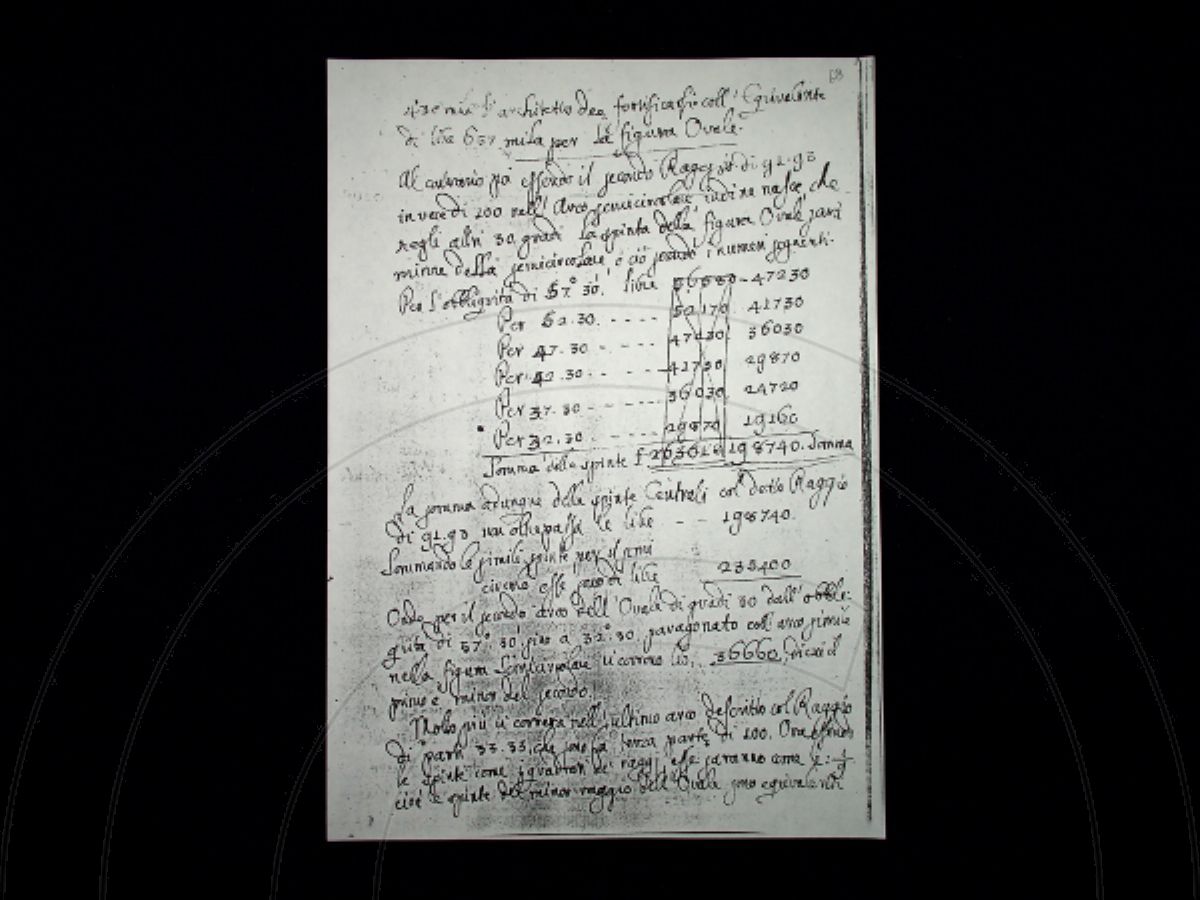 68
architetto deg fortificassi coll' Equivalente
di libre 637 mila per la figura Ovale.
Al contrario poi essendo il secondo Raggio di 91.93
in vece di 100 nell' Arco semicircolare indi ne nasce, che
negli altri 30 gradi la spinta della figura Ovale sarà
minore della semicircolare e ciò secondo i numeri seguenti.
Per l'obbliquità di 57.° 30.' libre 56680 - 47230
Per 52.30. - - - - 52170 41730
Per 47.30 - - - - 47230 36030
Per 42.30 - - - - 41730 29870
Per 37.30 - - - - 36030 24720
Per 32.30 - - - - 29870 19160
Somma della spinte 263610 198740. Somma
La somma adunque della spinte Centrali col detto Raggio
di 91.93 non oltrepassa le libre - - 198740.
Sommando le simili spinte per il semi
circolo esse sono di libre 235400
Onde per il secondo arco dell' Ovale di gradi 30 dall' obbli-
quità di 57.° 30.' sino a 32.° 30. paragonato coll' arco simile
nella figura Semicircolare vi corrono lib. 36660,
primo è minor del secondo.
Molto più vi correrà nell' ultimo arco descritto col Raggio
di parti 33.33, che sono la terza parte di 100. Onde essendo
le spinte come i quadrati de' raggi, esse saranno come
cioè le spinte del minor raggio dell' Ovale sono equivalenti